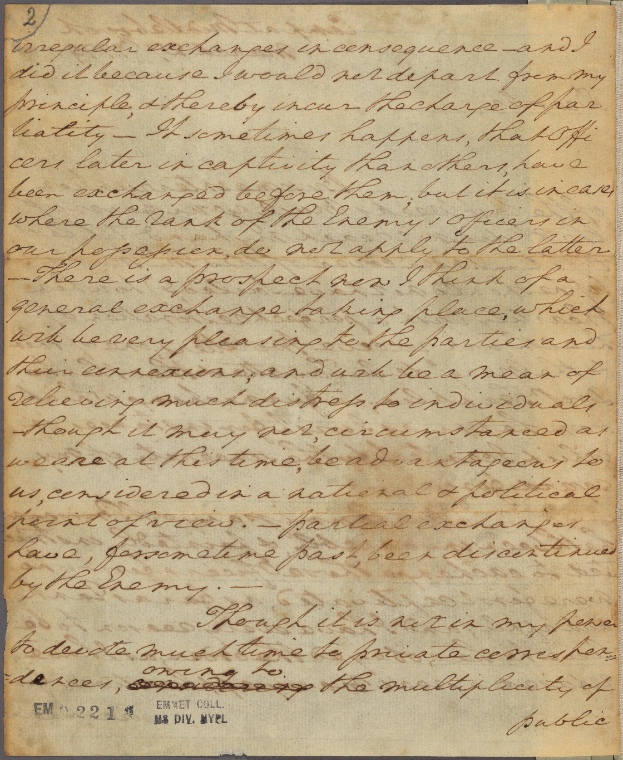 2
irregular exchanges in consequence – and I
did it because I would not depart from my
principle, & thereby incur the charge of par
tiality – It sometimes happens, that Offi
cers later in captivity than others, have
been exchanged before them, but it is in cases
where the rank of the Enemy's officers in
our possession, do not apply to the latter
– There is a prospect now I think of a
general exchange taking place, which
will be very pleasing to the parties and
their connexions; and will be a mean of
relieving much distress to individuals
– though it may not, circumstanced as
we are at this time, be advantageous to
us, considered in a national & political
point of view. – partial exchanges
have, for sometime past, been discontinued
by the Enemy. –
Though it is not in my power
to devote much time to private correspon=
owing to
=dences, the multiplicity of
public
EM 2211
EMMET COLL.
MS DIV. NYPL